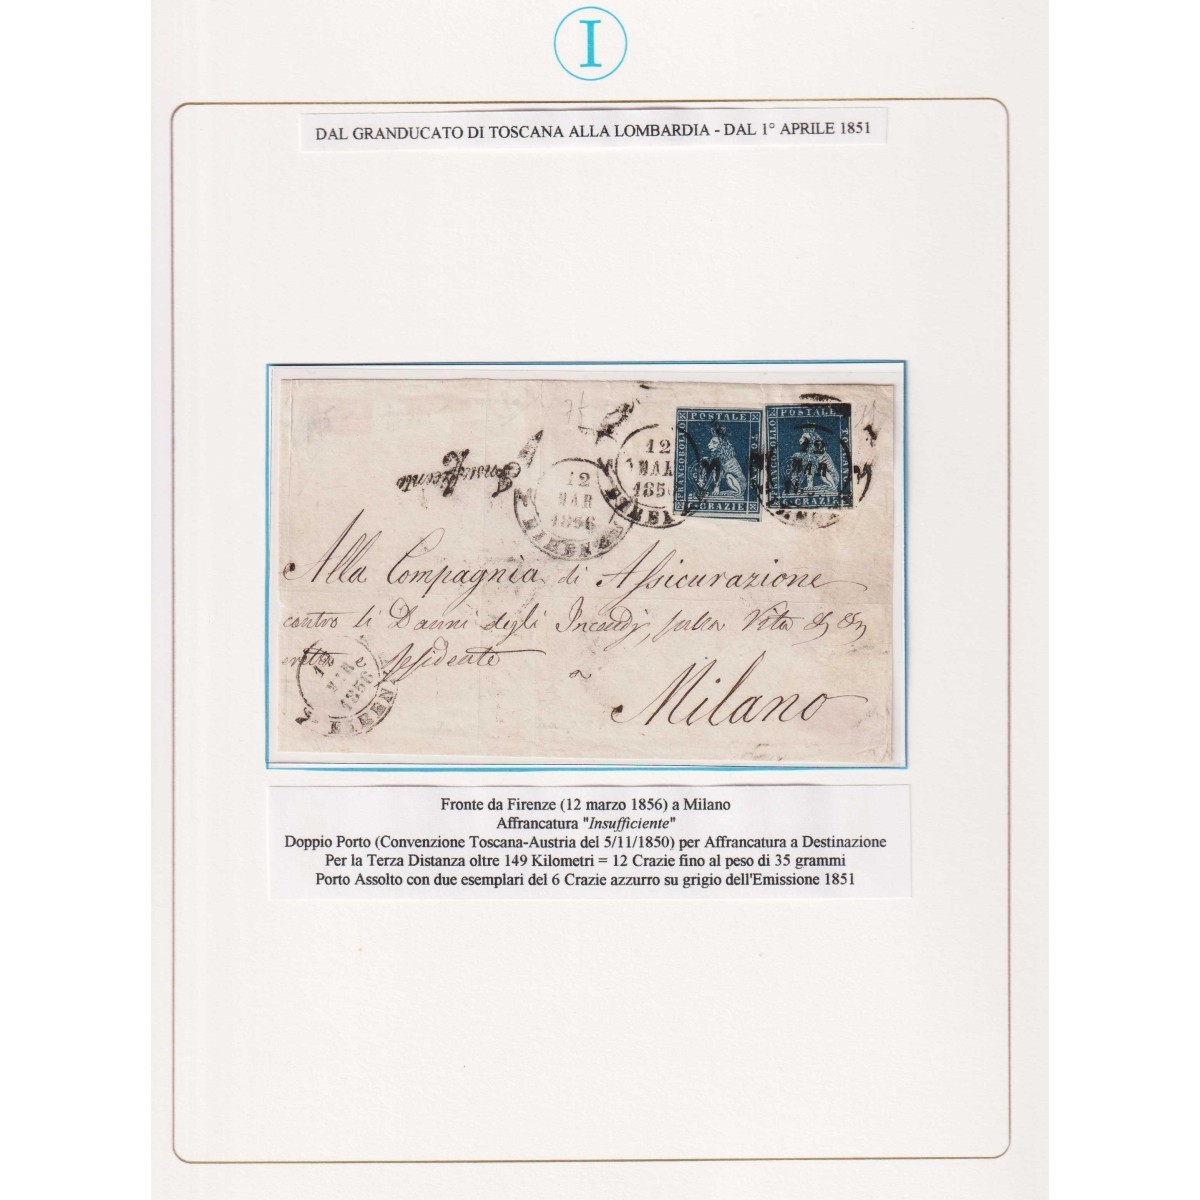 I
DAL GRANDUCATO DI TOSCANA ALLA LOMBARDIA - DAL 1° APRILE 1851
Insufficiente
12
MAR
1856
FIRENZE
12
MAR
1856
FIRENZE
FRANCOBOLLO POSTALE TOSCANO
6 CRAZIE
12
MAR
FRANCOBOLLO POSTALE TOSCANO
6 CRAZIE
Alla Compagnia di Assicurazione
contro li Danni degli Incendj, sulla Vita &. &.
residente
a
Milano
12
MAR
1856
FIRENZE
Fronte da Firenze (12 marzo 1856) a Milano
Affrancatura "Insufficiente"
Doppio Porto (Convenzione Toscana-Austria del 5/11/1850) per Affrancatura a Destinazione
Per la Terza Distanza oltre 149 Kilometri = 12 Crazie fino al peso di 35 grammi
Porto Assolto con due esemplari del 6 Crazie azzurro su grigio dell'Emissione 1851